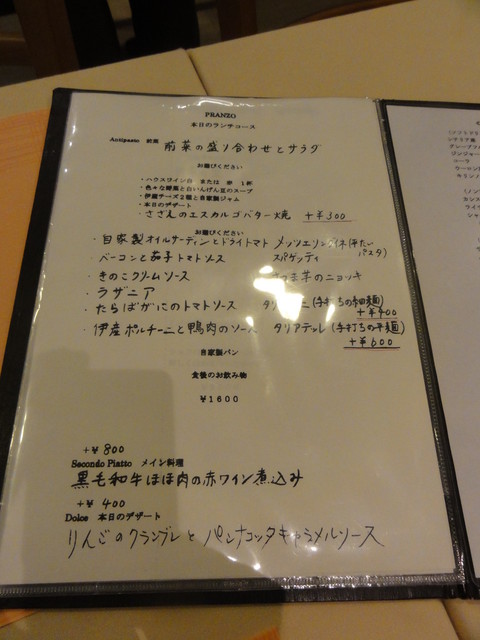 PRANZO
本日のランチコース
Antipasto 前菜 前菜の盛り合わせとサラダ
お選びください
・ハウスワイン白 または 赤 1杯
・色々な野菜と白いんげん豆のスープ
・伊産チーズ2種と自家製ジャム
・本日のデザート
・さざえのエスカルゴバター焼 +¥300
お選びください
・自家製オイルサーディンとドライトマト メッツェリングイネ(平たいパスタ)
・ベーコンと茄子トマトソース スパゲッティ
・きのこクリームソース さつま芋のニョッキ
・ラザニア
・たらばがにのトマトソース (手打ちの細麺)
+¥400
・伊産ポルチーニと鴨肉のソース タリアテッレ(手打ちの平麺)
+¥600
自家製パン
食後のお飲み物
¥1600
+¥800
Secondo Piatto メイン料理
黒毛和牛ほほ肉の赤ワイン煮込み
+¥400
Dolce 本日のデザート
りんごのクランブレとパンナコッタキャラメルソース